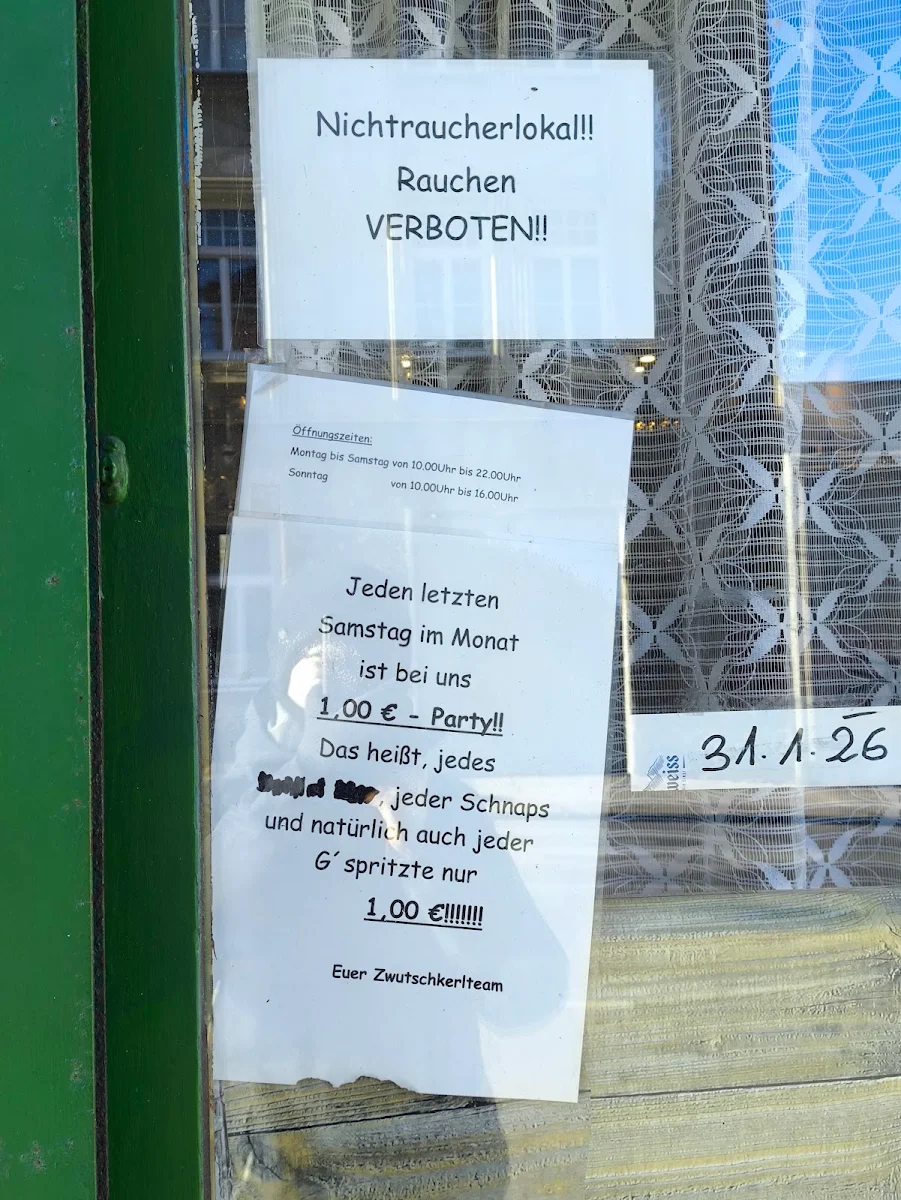 Nichtraucherlokal!!
Rauchen
VERBOTEN!!
Öffnungszeiten:
Montag bis Samstag von 10.00Uhr bis 22.00Uhr
Sonntag von 10.00Uhr bis 16.00Uhr
Jeden letzten
Samstag im Monat
ist bei uns
1,00 € - Party!!
Das heißt, jedes
, jeder Schnaps
und natürlich auch jeder
G´spritzte nur
1,00 €!!!!!!!
Euer Zwutschkerlteam
weiss
31.1.26